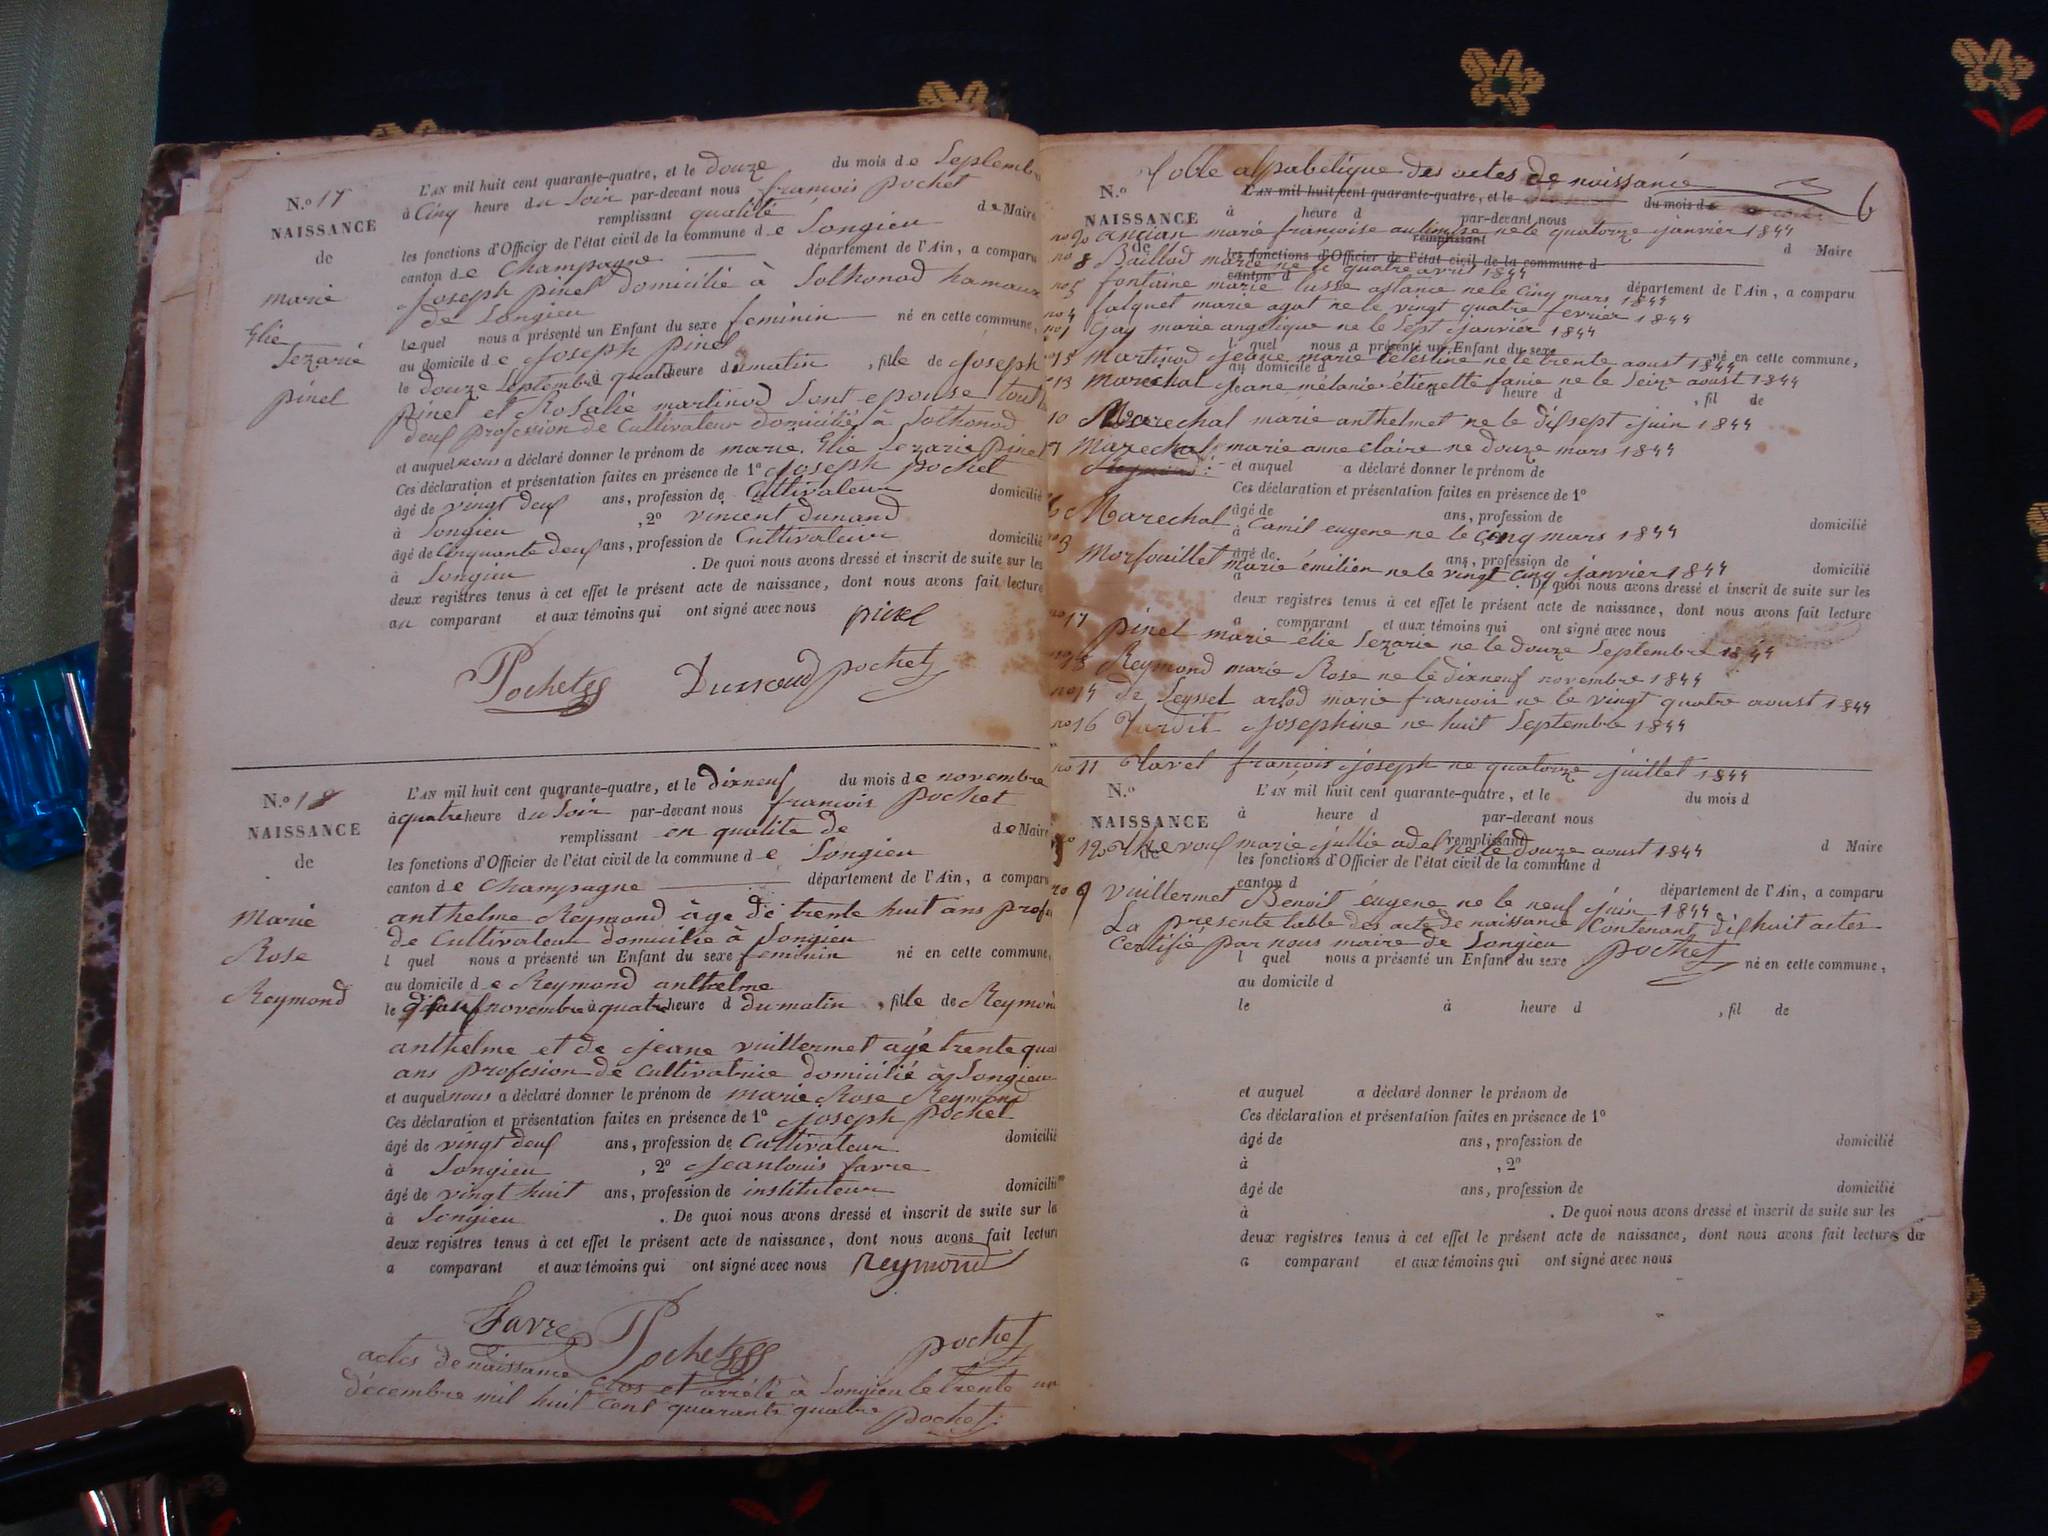 N.o 17
NAISSANCE
de
marie
Elie
Lezarie
pinel
L'AN mil huit cent quarante-quatre, et le douze du mois de Septembre
à Cinq heure du Soir par-devant nous francois pochet
remplissant qualité de Maire
les fonctions d'Officier de l'état civil de la commune de Songieu
canton de Champagne département de l'Ain, a comparu
Joseph pinel domicilié à Solhonod hamaux
de Songieu
lequel nous a présenté un Enfant du sexe feminin né en cette commune,
au domicile de Joseph pinel
le douze Septembre à quatre heure du matin, fille de Joseph
pinel et Rosalie martinod Sont epouse tout
deux profession de Cultivateur domicilié à Solhonod
et auquel nous a déclaré donner le prénom de marie Elie Lezarie pinel
Ces déclaration et présentation faites en présence de 1o Joseph pochet
âgé de vingt deux ans, profession de Cultivateur domicilié
à Songieu, 2o vincent dunand
âgé de Cinquante deux ans, profession de Cultivateur domicilié
à Songieu. De quoi nous avons dressé et inscrit de suite sur les
deux registres tenus à cet effet le présent acte de naissance, dont nous avons fait lecture
au comparant et aux témoins qui ont signé avec nous pinel
Pochet Dunand pochet
N.o 18
NAISSANCE
de
Marie
Rose
Reymond
L'AN mil huit cent quarante-quatre, et le dixneuf du mois de novembre
à quatre heure du Soir par-devant nous francois pochet
remplissant en qualite de de Maire
les fonctions d'Officier de l'état civil de la commune de Songieu
canton de Champagne département de l'Ain, a comparu
anthelme Reymond âge de trente huit ans profes
de Cultivateur domicilie à Songieu
l quel nous a présenté un Enfant du sexe feminin né en cette commune,
au domicile de Reymond anthelme
le dixneuf novembre à quatre heure d du matin, fille de Reymond
anthelme et de jeane vuillermet agé trente qua
ans profesion de Cultivatrice domicilié à Songieu
et auquel nous a déclaré donner le prénom de marie Rose Reymond
Ces déclaration et présentation faites en présence de 1o Joseph pochet
âgé de vingt deux ans, profession de Cultivateur domicilié
à Songieu, 2o Jeanlouis favre
âgé de vingt huit ans, profession de instituteur domicilié
à Songieu. De quoi nous avons dressé et inscrit de suite sur les
deux registres tenus à cet effet le présent acte de naissance, dont nous avons fait lecture
a comparant et aux témoins qui ont signé avec nous Reymond
Favre Pochet pochet
actes de naissance clos et arrété à Songieu le trente un
décembre mil huit Cent quarante quatre pochet
Toble alpabetique des actes de naissance
N.o L'AN mil huit cent quarante-quatre, et le du mois de
NAISSANCE à heure d par-devant nous
no 20 ancian marie françoise ne le quatorze janvier 1844
de remplissant d Maire
les fonctions d'Officier de l'état civil de la commune d
no 8 Baillod marie ne le quatre avril 1844
canton d département de l'Ain, a comparu
no 5 fontaine marie ne le Cinq mars 1844
no 4 falquet marie agat ne le vingt quatre fevrier 1844
no 1 Gay marie angelique ne le Sept janvier 1844
l quel nous a présenté un Enfant du sexe né en cette commune,
no 15 Martinod jeane marie Celestine ne le trente aoust 1844
au domicile d
13 Marechal jeane mélanie étienette fanie ne le Seize aoust 1844
à heure d, fil de
10 Marechal marie anthelmet ne le dixsept juin 1844
7 Marechal marie anne claire ne douze mars 1844
et auquel a déclaré donner le prénom de
Ces déclaration et présentation faites en présence de 1o
âgé de ans, profession de domicilié
6 Marechal Camil eugene ne le cinq mars 1844
à
âgé de ans, profession de domicilié
no 3 Morfouillet marie émilien ne le vingt cinq janvier 1844
à. De quoi nous avons dressé et inscrit de suite sur les
deux registres tenus à cet effet le présent acte de naissance, dont nous avons fait lecture
a comparant et aux témoins qui ont signé avec nous
no 17 pinel marie élie Lezarie ne le douze Septembre 1844
no 18 Reymond marie Rose ne le dixneuf novembre 1844
no 14 de Seyssel artod marie francois ne le vingt quatre aoust 1844
no 16 Tardit Josephine ne huit Septembre 1844
no 11 Tavel françois joseph ne quatorze juillet 1844
N.o L'AN mil huit cent quarante-quatre, et le du mois d
NAISSANCE à heure d par-devant nous
de remplissant d Maire
no 12 marie jullie adel ne le douze aoust 1844
les fonctions d'Officier de l'état civil de la commune d
canton d département de l'Ain, a comparu
no 9 vuillermet Benoit éugene ne le neuf juin 1844
La presente table des acte de naissance Contenant dixhuit actes
Certifié par nous maire de Songieu pochet
l quel nous a présenté un Enfant du sexe né en cette commune,
au domicile d
le à heure d, fil de
et auquel a déclaré donner le prénom de
Ces déclaration et présentation faites en présence de 1o
âgé de ans, profession de domicilié
à, 2o
âgé de ans, profession de domicilié
à. De quoi nous avons dressé et inscrit de suite sur les
deux registres tenus à cet effet le présent acte de naissance, dont nous avons fait lecture
a comparant et aux témoins qui ont signé avec nous